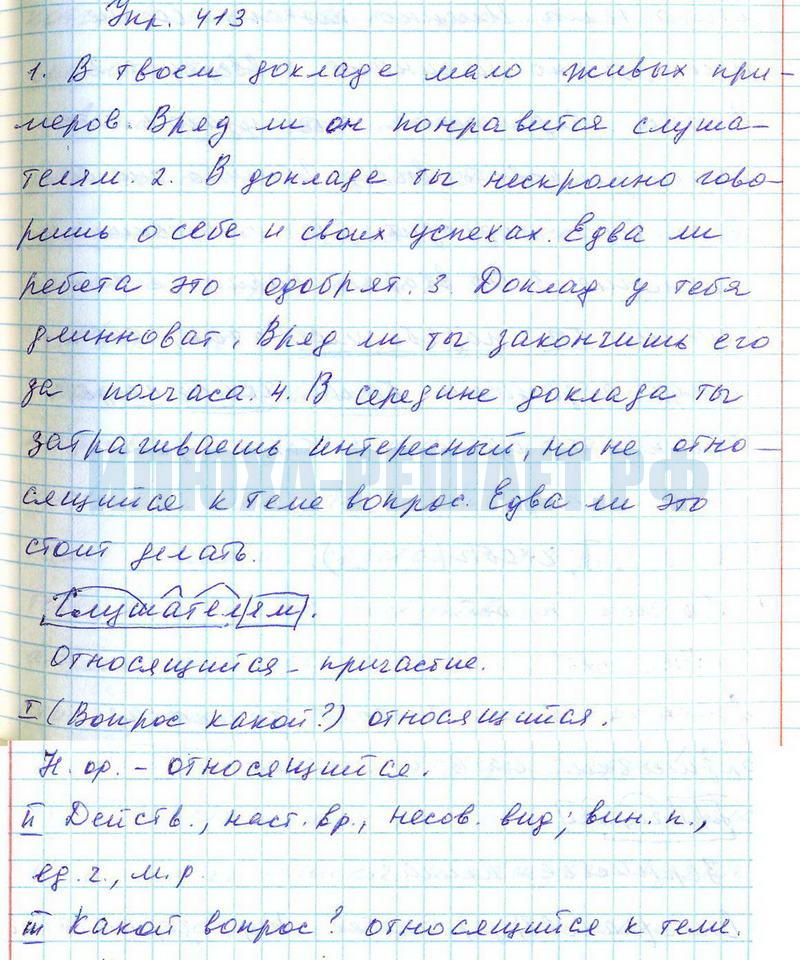 Упр. 413.
1. В твоем докладе мало живых при-
меров. Вряд ли он понравится слуша-
телям. 2. В докладе ты нескромно гово-
ришь о себе и своих успехах. Едва ли
ребята это одобрят. 3. Доклад у тебя
длинноват, Вряд ли ты закончишь его
за полчаса. 4. В середине доклада ты
затрагиваешь интересный, но не отно-
ИЛЮХА-РЕШАЕТ.РФ
сящийся к теме вопрос. Едва ли это
стоит делать.
Слушателям.
Относящийся – причастие.
I (Вопрос какой?) относящийся.
Н. ф. – относящийся.
II Действ., наст. вр., несов. вид; вин. п.,
ед. ч., м. р.
III Какой вопрос? относящийся к теме.